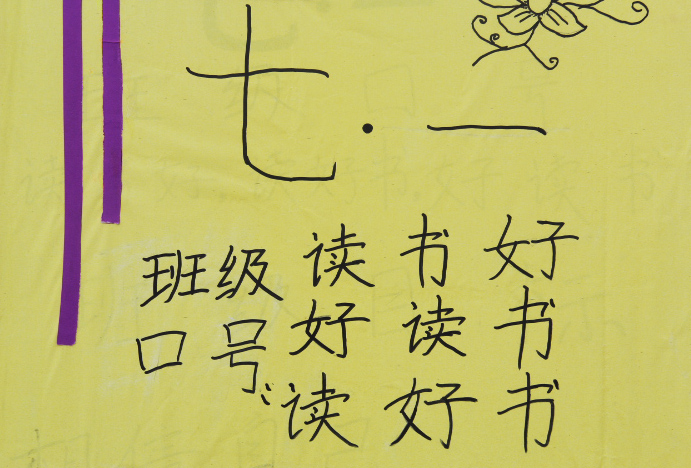 七·一
班级口号:
读书好
好读书
读好书